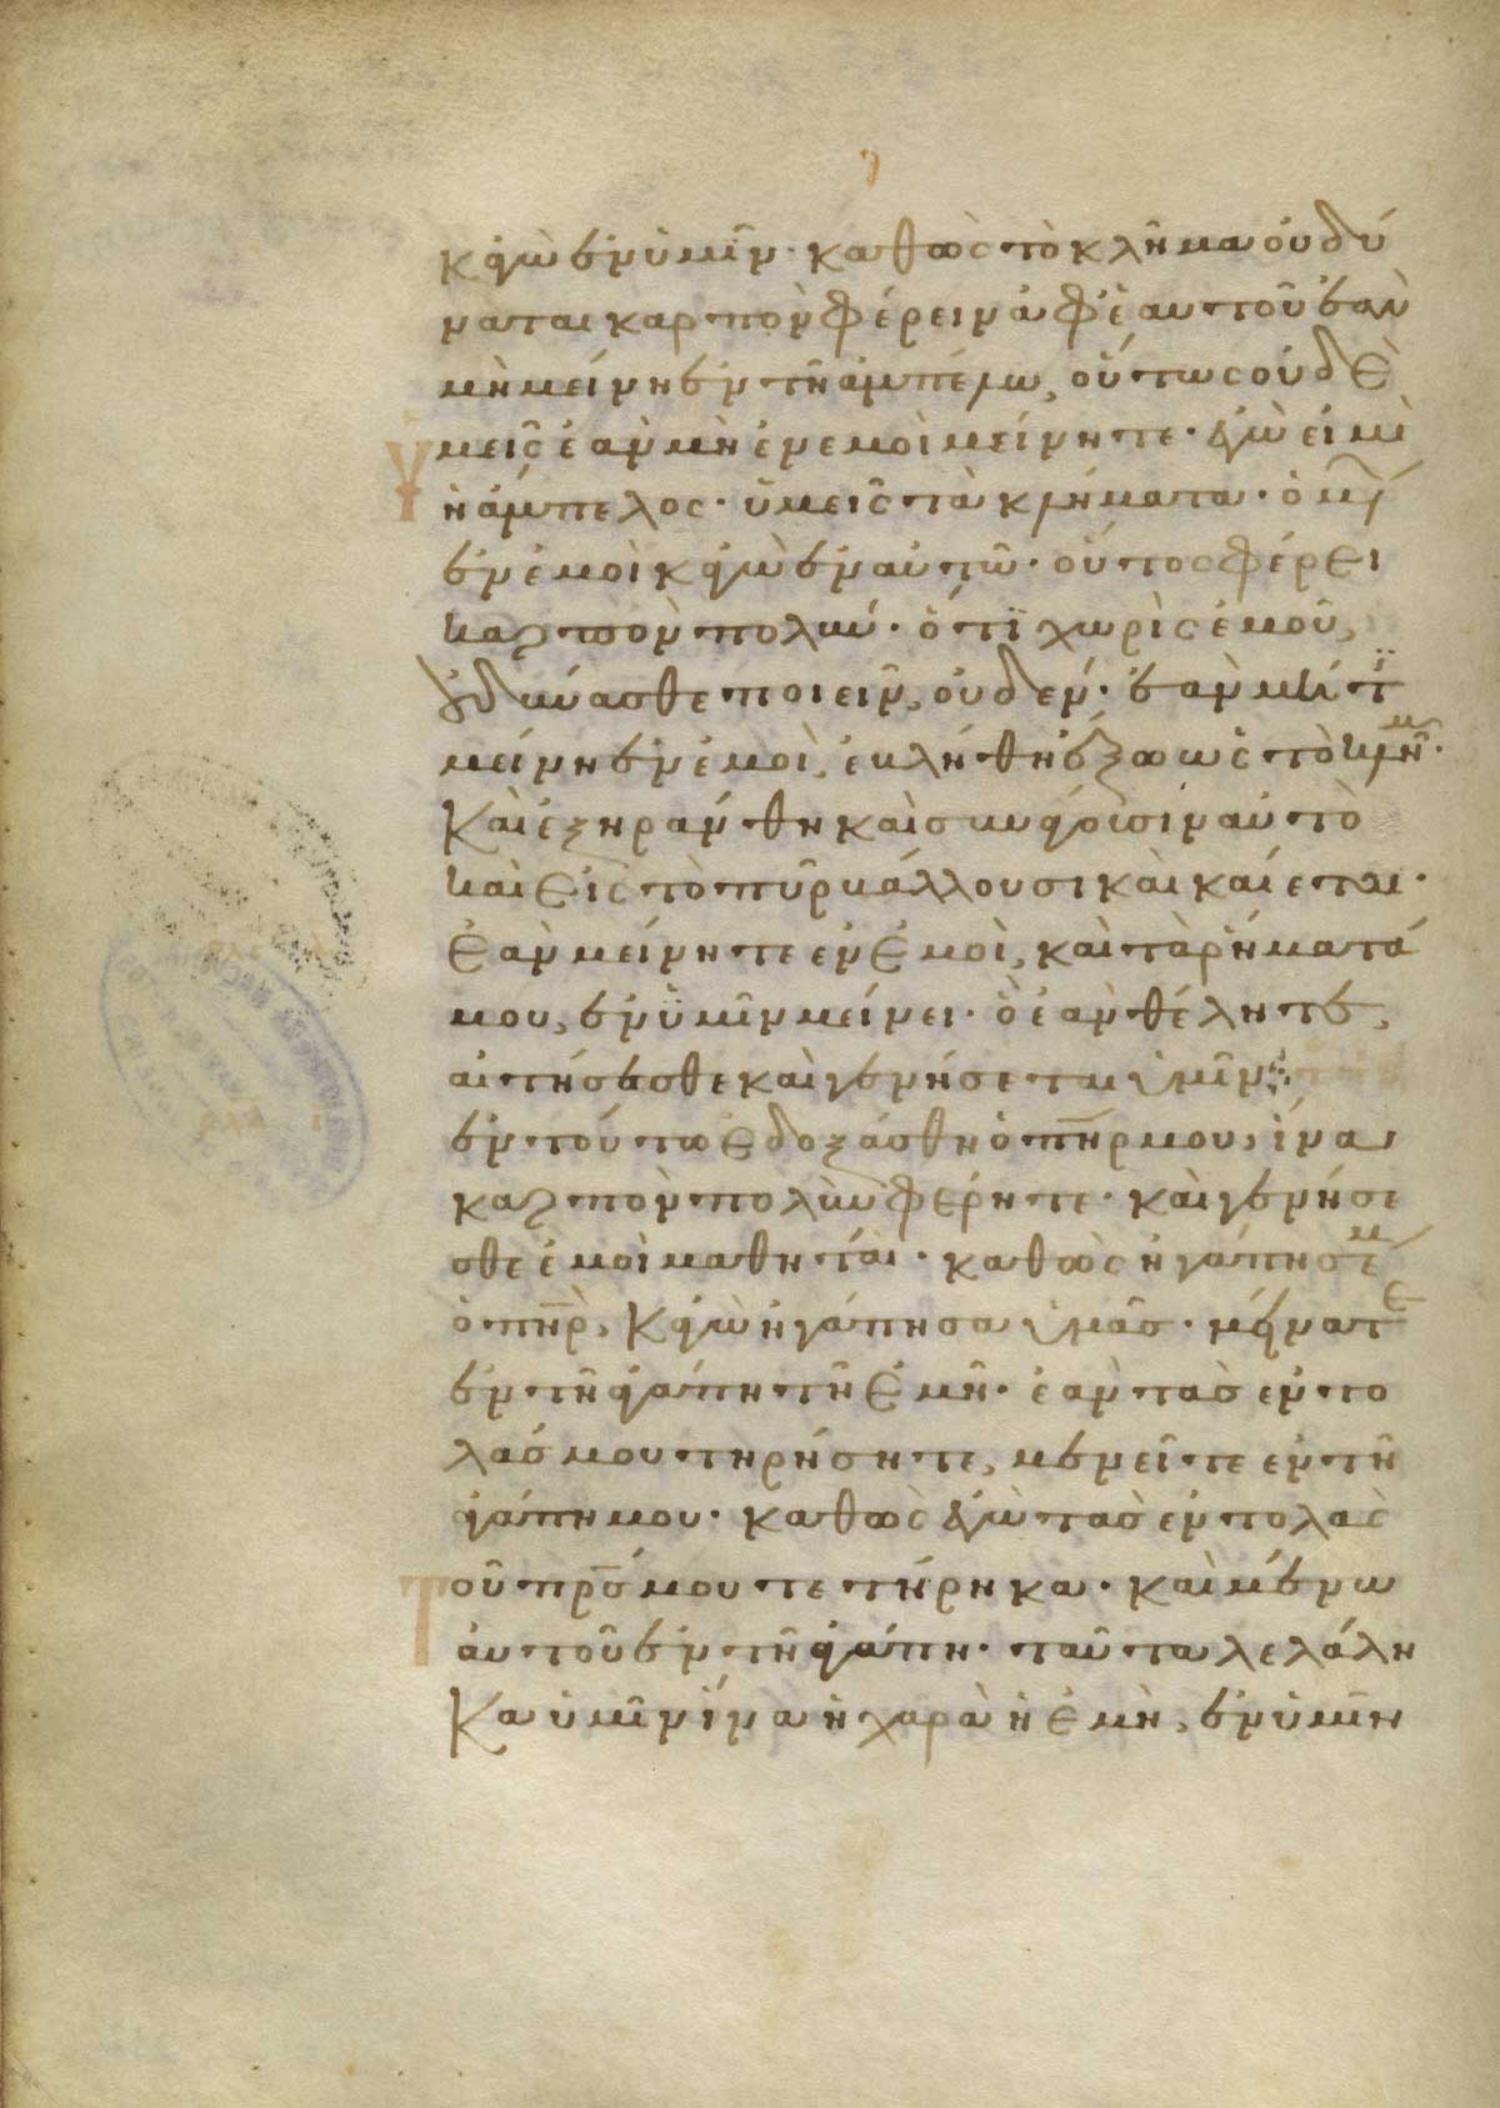 κἀγὼ ἐν ὑμῖν· καθὼς τὸ κλῆμα οὐ δύ
ναται καρπὸν φέρειν ἀφ' ἑαυτοῦ ἐὰν
μὴ μείνη ἐν τῆ ἀμπέλω, οὕτως οὐδὲ
ὑμεῖς ἐὰν μὴ ἐν ἐμοὶ μείνητε· ἐγὼ εἰμὶ
ἡ ἄμπελος· ὑμεῖς τὰ κλήματα· ὁ μέν
ἐν ἐμοὶ κἀγὼ ἐν αὐτῶ· οὗτος φέρει
καρπὸν πολύν· ὅτϊ χωρὶς ἐμοῦ,
οὐ δύνασθε ποιεῖν, οὐδέν· ἐὰν μή τϊ
μείνη ἐν ἐμοὶ, ἐβλήθη ἔξω ὡς τὸ κλῆμ·
Καὶ ἐξηράνθη καὶ συνάγουσιν αὐτὸ
καὶ εἰς τὸ πῦρ βάλλουσι καὶ καίεται·
ἐὰν μείνητε ἐν ἐμοὶ, καὶ τὰ ῥήματά
μου, ἐν ϋμῖν μείνει· ὃ ἐὰν θέλητε,
αἰτήσασθε καὶ γενήσεται ὑμῖν
ἐν τούτω ἐδοξάσθη ὁ πηρ μου, ἵνα
καρπὸν πολὺν φέρητε· καὶ γενήσε
σθε ἐμοὶ μαθηταί· καθὼς ἠγάπησέ μ
ὁ πηρ, Κἀγὼ ἠγάπησα ὑμᾶς· μείνατε
ἐν τῆ ἀγάπη τῆ ἐμῆ· ἐὰν τὰς ἐντο
λάς μου τηρήσητε, μενεῖτε ἐν τῆ
ἀγάπη μου· καθὼς ἐγὼ τὰς ἐντολὰς
τοῦ πρς μου τετήρηκα· καὶ μένω
αὐτοῦ ἐν τῆ ἀγάπη· ταῦτα λελάλη
Κα ὑμῖν ἵνα ἡ χαρὰ ἡ ἐμὴ, ἐν ὑμῖν